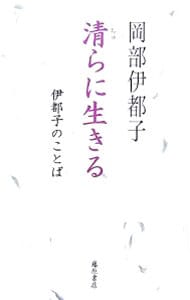 岡部伊都子
清らに生きる
伊都子のことば
藤原書店